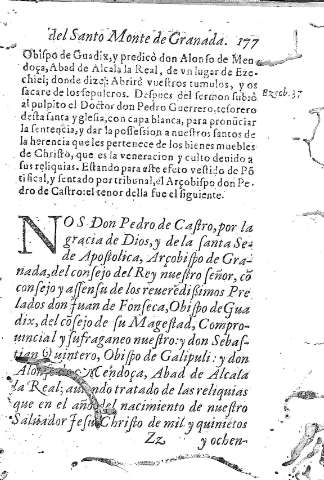 del Santo Monte de Granada. 177
Obispo de Guadix, y predicò don Alonso de Men
doça, Abad de Alcala la Real, de vn lugar de Eze-
chiel; donde dize: Abrirè vuestros tumulos, y os
sacare de los sepulcros. Despues del sermon subiò
Ezech. 37
al pulpito el Doctor don Pedro Guerrero, tesorero
desta santa yglesia, con capa blanca, para pronũciar
la sentencia, y dar la possession a nuestros santos de
la herencia que les pertenece de los bienes muebles
de Christo, que es la veneracion y culto deuido a
sus reliquias. Estando para este efeto vestido de Põ
tifical, y sentado por tribunal, el Arçobispo don Pe-
dro de Castro: el tenor della fue el siguiente.
NOS Don Pedro de Castro, por la
gracia de Dios, y de la santa Se-
de Apostolica, Arçobispo de Gra-
nada, del consejo del Rey nuestro señor, cõ
consejo y assensu de los reuerẽdissimos Pre
lados don Juan de Fonseca, Obispo de Gua
dix, del cõsejo de su Magestad, Compro-
uincial y sufraganeo nuestro: y don Sebas-
tian Quintero, Obispo de Galipuli: y don
Alonso de Mendoça, Abad de Alcala
la Real; auiendo tratado de las reliquias
que en el año del nacimiento de nuestro
Saluador Jesu Christo de mil y quiniẽtos
Zz y ochen-